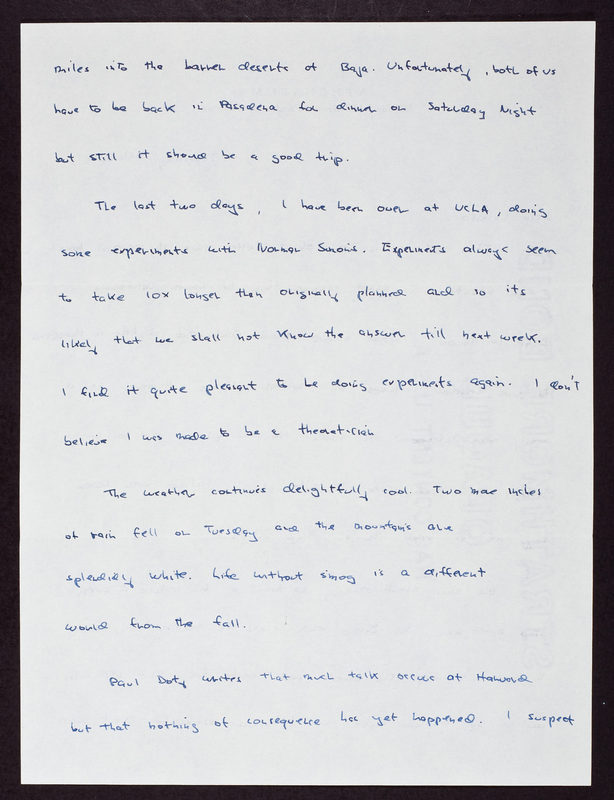 miles into the barren deserts of Baja. Unfortunately, both of us
have to be back in Pasadena for dinner on Saturday Night
but still it should be a good trip.
The last two days, I have been over at UCLA, doing
some experiments with Norman Simons. Experiments always seem
to take 10x longer than originally planned and so its
likely that we shall not know the answer till next week.
I find it quite pleasant to be doing experiments again. I don't
believe I was made to be a theoretician
The weather continues delightfully cool. Two more inches
of rain fell on Tuesday and the mountains are
splendidly white. Life without smog is a different
world from the fall.
Paul Doty writes that much talk occurs at Harvard
but that nothing of consequence has yet happened. I suspect